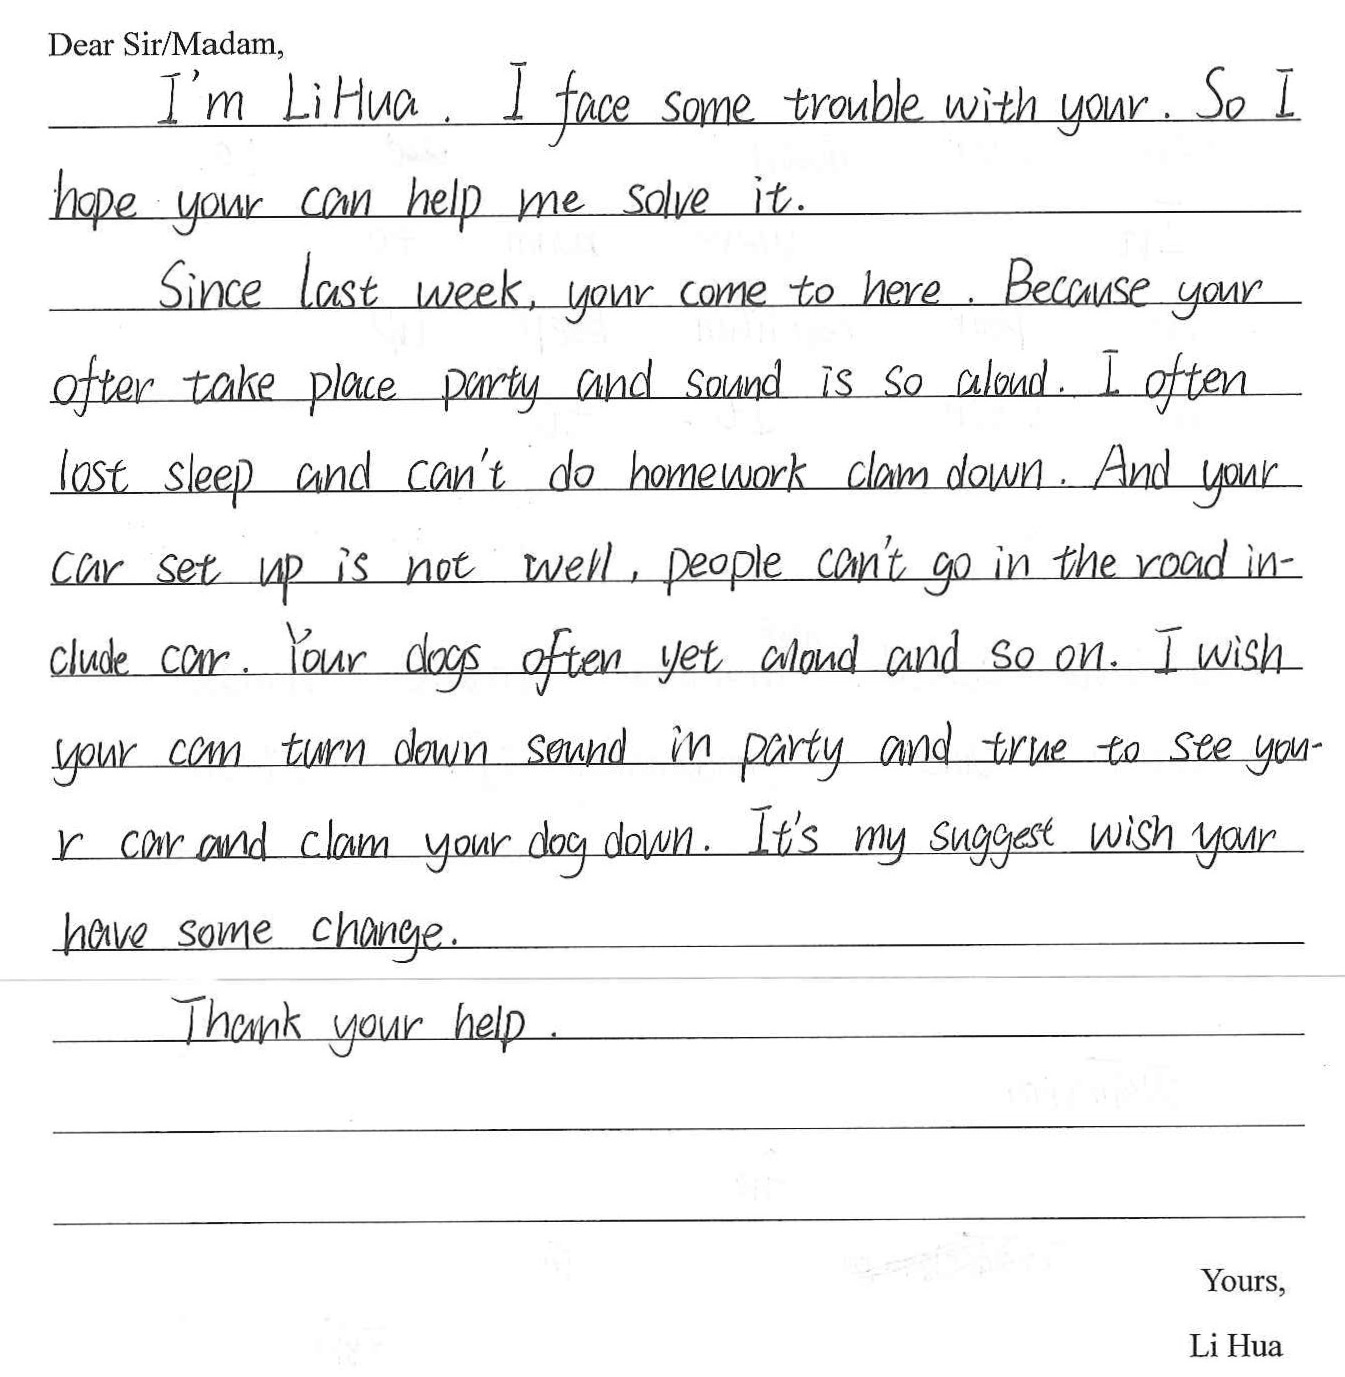 Dear Sir/Madam,
I'm Li Hua. I face some trouble with your. So I
hope your can help me solve it.
Since last week, your come to here. Because your
ofter take place party and sound is so aloud. I often
lost sleep and can't do homework clam down. And your
car set up is not well, people can't go in the road in-
clude car. Your dogs often yet aloud and so on. I wish
your can turn down sound in party and true to see you-
r car and clam your dog down. It's my suggest wish your
have some change.
Thank your help.
Yours,
Li Hua